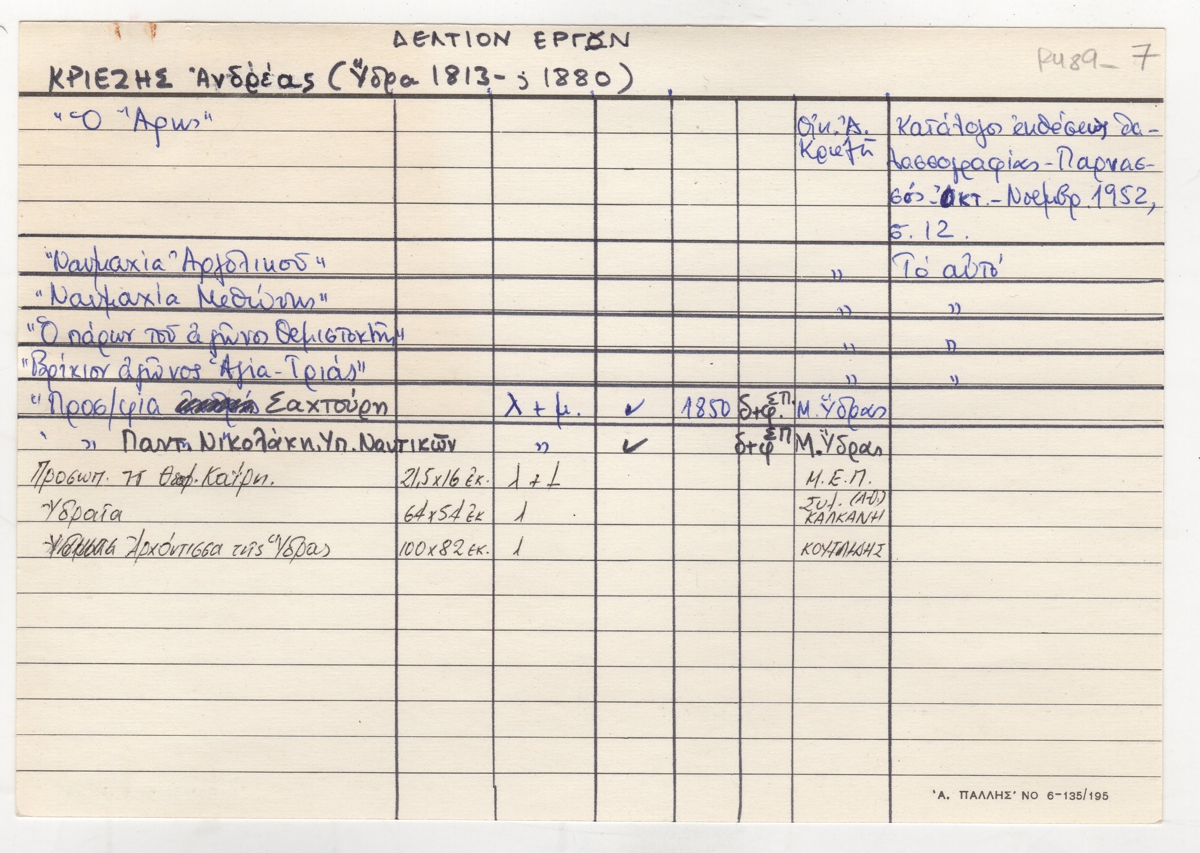 ΔΕΛΤΙΟΝ ΕΡΓΩΝ
RU89-7
ΚΡΙΕΖΗΣ Ἀνδρέας (Ὕδρα 1813- ; 1880)
"Ὁ Ἄρης" Οἰκ. Ἀ. Κριεζῆ Κατάλογος ἐκθέσεως θα-
λασσογραφίας - Παρνασ-
σός - Ὀκτ. - Νοέμβρ. 1952,
σ. 12.
"Ναυμαχία Ἀργολικοῦ" " Τό αὐτό
"Ναυμαχία Μεθώνης" " "
"Ὁ πάρων τοῦ ἀγῶνος Θεμιστοκλῆς" " "
"Βρίκιον ἀγῶνος Ἁγία-Τριάς" " "
"Προσ/φία Σαχτούρη λ + μ. ✓ 1850 δ+φ. ΣΠ. Μ. Ὕδρας
" " Παντ. Νικολάκη, Υπ. Ναυτικῶν " ✓ δ+φ ΣΠ Μ. Ὕδρας
Προσωπ. Θεοφ. Καΐρη. 21,5x16 ἐκ. λ + Μ.Ε.Π.
Ὑδραία 64x54 ἐκ λ Συλ. (ΑΘ.) ΚΑΛΚΑΝΗ
Ἀρχόντισσα τῆς Ὕδρας 100x82 ἐκ. λ ΚΟΥΤΛΙΔΗΣ
'Α. ΠΑΛΛΗΣ' ΝΟ 6-135/195